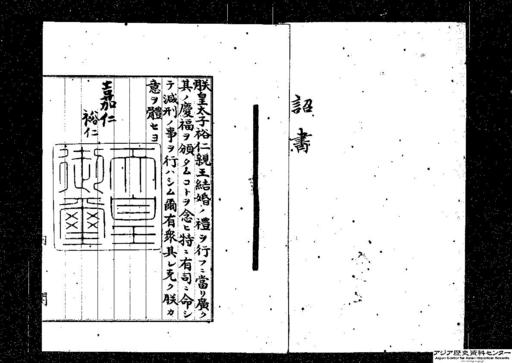 詔書
朕皇太子裕仁親王結婚ノ禮ヲ行フニ當リ廣ク
其ノ慶福ヲ頒タムコトヲ念ヒ特ニ有司ニ命シ
テ減刑ノ事ヲ行ハシム爾有衆其レ克ク朕カ
意ヲ體セヨ
嘉仁
裕仁
天皇
御璽
アジア歴史資料センター
Japan Center for Asian Historical Records